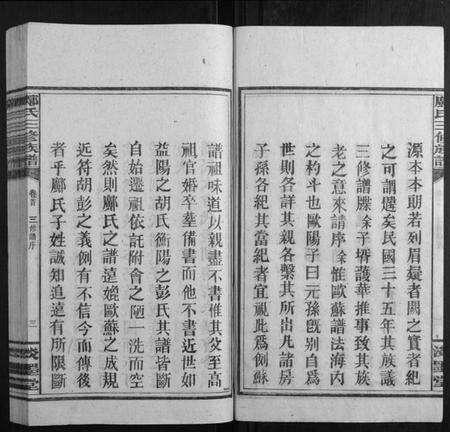 源本本朗若列眉疑者闕之實者紀
之可謂㦤矣民國三十五年其族議
三修譜牒余子壻護華推事致其族
老之意來請序余惟歐蘇譜法海內
之杓斗也歐陽子曰元孫旣別自爲
世則各詳其親各繫其所出凡諸房
子孫各紀其當紀者宜視此爲例蘇
鄺氏三修族譜
譜祖味道以親盡不書惟其父至高
祖官婚卒葬備書而他不書近世如
益陽之胡氏衡陽之彭氏其譜皆斷
自始遷祖依託附會之陋一洗而空
矣然則鄺氏之譜遠媲歐蘇之成規
近符胡彭之義例有不信今而傳後
者乎鄺氏子姓誠知追遠有所限斷
鄺氏三修族譜
卷首
三修譜序
三